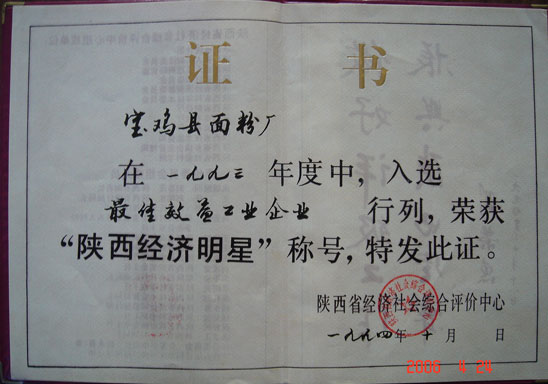 证 书
宝鸡县面粉厂
在 一九九三 年度中，入选
最佳效益工业企业 行列，荣获
“陕西经济明星”称号，特发此证。
陕西省经济社会综合评价中心
一九九四年 十 月 日
2006 4 24